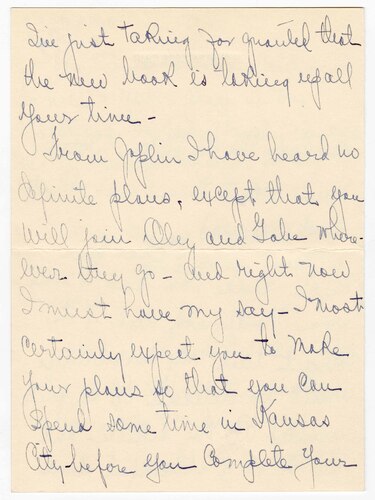 I've just taking for granted that
the new book is taking up all
your time -
From Joplin I have heard no
definite plans, except that you
will join Oley and Gabe where-
ever they go - and right now
I must have my say - I most
certainly expect you to make
your plans so that you can
spend some time in Kansas
City before you complete your